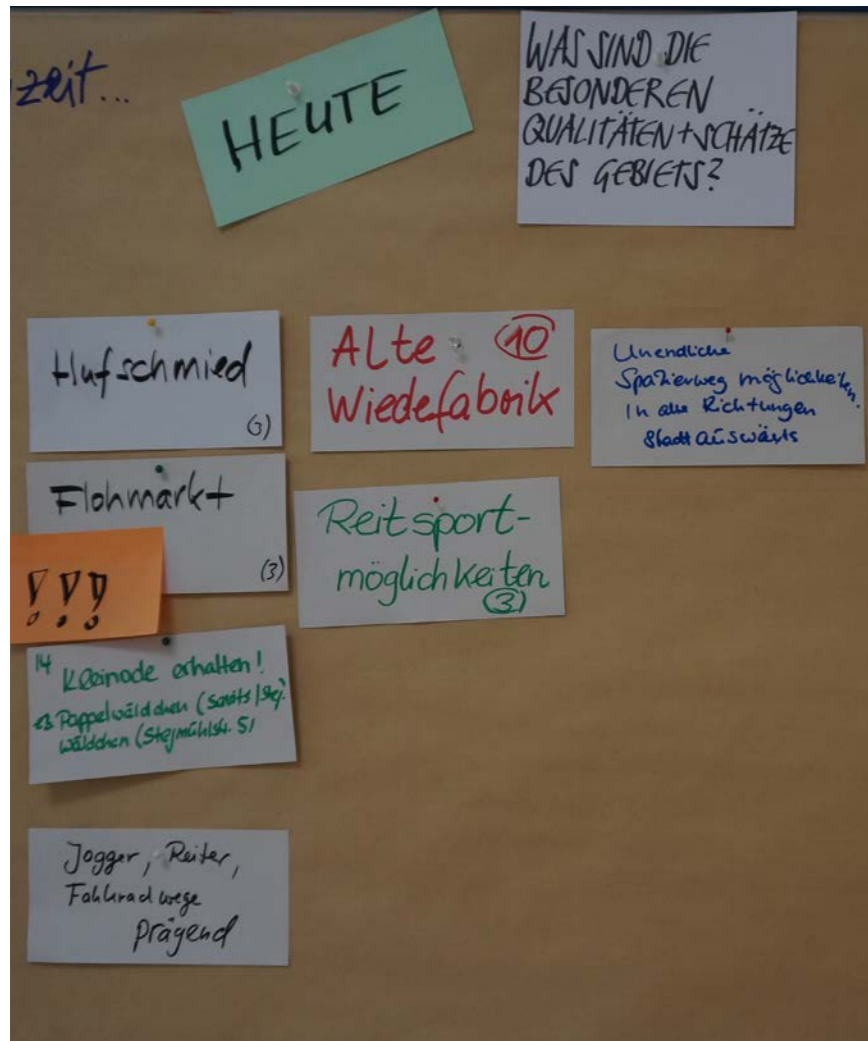 zeit...
HEUTE
WAS SIND DIE
BESONDEREN
QUALITÄTEN+SCHÄTZE
DES GEBIETS?
Hufschmied
(3)
Alte 10
Wiedefabrik
Unendliche
Spazierweg möglichkeiten
In alle Richtungen
Stadtauswärts
Flohmarkt
(3)
!!!
Reitsport-
möglichkeiten
(3)
14
Kleinode erhalten!
Pappelwäldchen
wäldchen
Jogger, Reiter,
Fahrradwege
prägend